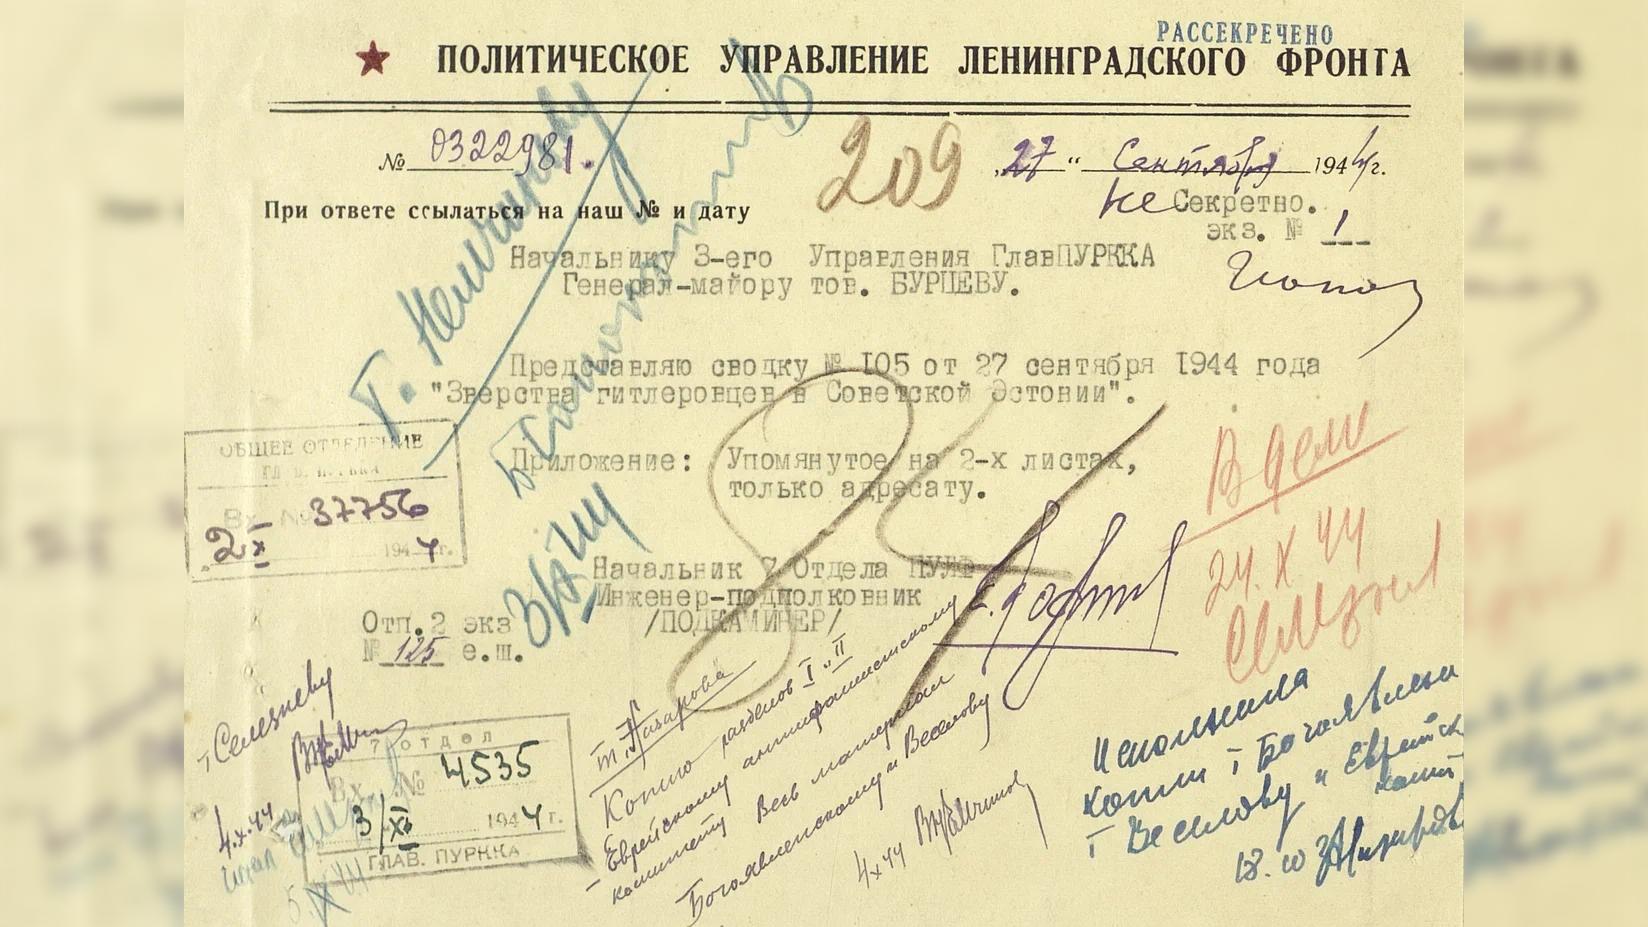 РАССЕКРЕЧЕНО
ПОЛИТИЧЕСКОЕ УПРАВЛЕНИЕ ЛЕНИНГРАДСКОГО ФРОНТА
№ 0322981.
209
„27“ Сентября 1944г.
При ответе ссылаться на наш № и дату
не Секретно.
экз. № 1
Начальнику 3-его Управления ГлавПУРККА
Генерал-майору тов. БУРЦЕВУ.
Представляю сводку № 105 от 27 сентября 1944 года
"Зверства гитлеровцев в Советской Эстонии".
ОБЩЕЕ ОТДЕЛЕНИЕ
Вх. № 37756
2 X 1944г.
Приложение: Упомянутое на 2-х листах,
только адресату.
В дело
24.X 44
Начальник 7 Отдела ПУЛФ
Инженер-подполковник
/ПОДКАМИНЕР/
Отп.2 экз
№ 125 е.ш.
т Селезневу
4.X.44
7 отдел
Вх. № 4535
3/X 1944г.
ГЛАВ. ПУРККА
т. Назарова
Копию разделов I и II
– Еврейскому антифашистскому
комитету Весь материал
– Богоявленскому и Веселову
4X44
Исполнила
копии т Богоявлен
т Веселову и Еврейск
комит